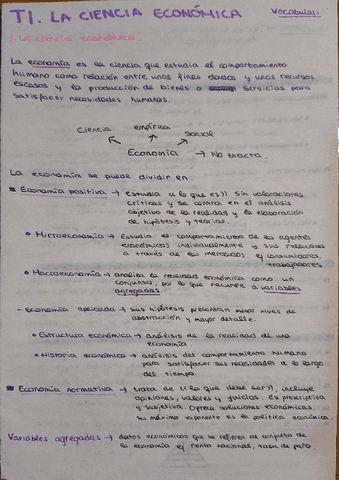 T1. LA CIENCIA ECONÓMICA
1. La ciencia económica.
La economía es la ciencia que estudia el comportamiento
humano como relación entre unos fines dados y unos recursos
escasos y la producción de bienes o servicios para
satisfacer necesidades humanas.
Ciencia empírica Social
Economía → No exacta.
La economía se puede dividir en:
Economía positiva → estudia «lo que es» sin valoraciones
críticas y se centra en el análisis
objetivo de la realidad y la elaboración
de hipótesis y teorías.
Microeconomía → Estudia el comportamiento de los agentes
económicos individualmente y sus relaciones
a través de los mercados. ej consumidores,
trabajadores
Macroeconomía → analiza la realidad económica como un
conjunto, por lo que recurre a variables
agregadas
Economía aplicada → sus hipótesis presentan menor nivel de
abstracción y mayor detalle.
Estructura económica → análisis de la realidad de una
economía
Historia económica → análisis del comportamiento humano
para satisfacer sus necesidades a lo largo
del tiempo.
Economía normativa → trata de «lo que debe ser», incluye
opiniones, valores y juicios. Es prescriptiva
y subjetiva. Ofrece soluciones económicas.
su máximo exponente es la política económica.
Variables agregadas → datos económicos que se refieren al conjunto de
la economía ej renta nacional, tasa de paro